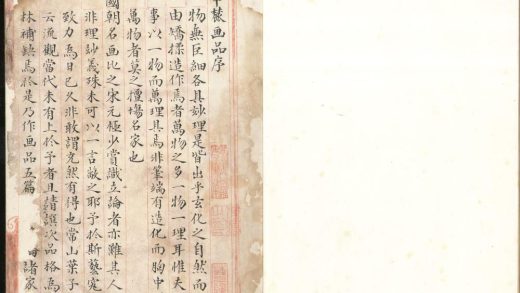 麓画品序
物無巨細各具妙理是皆出乎玄化之自然而
由矯揉造作焉者萬物之多一物一理耳惟夫
事以一物而萬理具焉非筆端有造化而胸中
萬物者莫之擅場名家也
國朝名画比之宋元極少賞識立論者亦難其人
非理妙義殊未可以一言敝之耶予於斯藝究
致力焉日已久非敢謂充然有得也常山葉子
云流觀當代未有上於予者且請譔次品格焉
林補缺焉於是乃作画品五篇
曰諸家